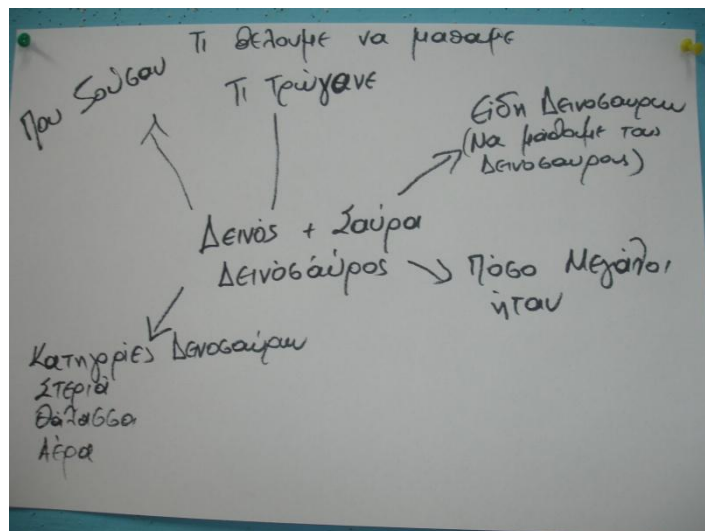 Τι θελουμε να μαθαμε
Που ζούσαν
Τι Τρώγανε
Είδη Δεινοσαυρων
(Να μάθουμε τους
Δεινοσαυρους)
Δεινός + Σαύρα
Δεινόσάυρος
Πόσο Μεγάλοι
ήταν
Κατηγορίες Δενοσαύρων
Στεριά
Θάλασσα
Αέρα